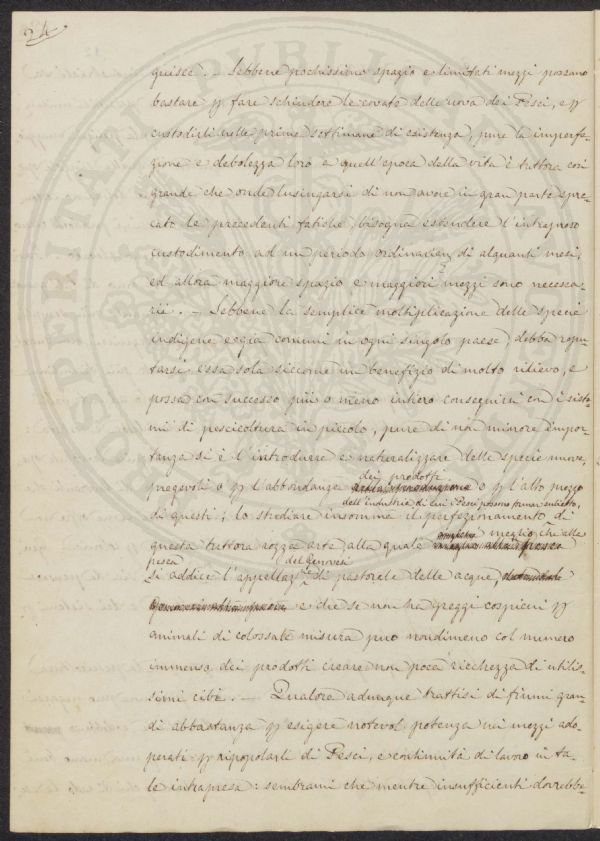 24
guisce. - Sebbene pochissimo spazio e limitati mezzi possano
bastare p fare schiudere le covate delle uova dei Pesci, e p
custodirli nelle prime settimane di esistenza, pure la imperfe-
zione e debolezza loro a quell'epoca della vita è tuttora così
grande che onde lusingarsi di non avere in gran parte spre-
cato le precedenti fatiche bisogna estendere l'intrapreso
custodimento ad un periodo ordinariam. di alquanti mesi,
ed allora maggiore spazio e maggiori mezzi sono necessa-
rii. - Sebbene la semplice moltiplicazione delle specie
indigene e già comuni in ogni singolo paese, debba repu-
tarsi essa sola siccome un benefizio di molto rilievo, e
possa con successo più o meno intiero conseguirsi con i siste-
mi di pescicoltura in piccolo, pure di non minore impor-
tanza si è l'introdurre e naturalizzare delle specie nuove,
dei prodotti
pregevoli o p l'abbondanza e p l'alto prezzo
dell'industria, di cui i Pesci possono formar subietto,
di questi; lo studiare insomma il perfezionamento di
meglio che alle
questa tuttora rozza arte, alla quale
pesca del Genovesi
si addice l'appellaz.e di pastorale delle acque,
e che se non ha greggi cospicui p
animali di colossale misura può nondimeno col numero
immenso dei prodotti creare non poca ricchezza di utilis-
simi cibi. - Qualora adunque trattisi di fiumi gran-
di abbastanza p esigere notevol potenza nei mezzi ado-
perati p ripopolarli di Pesci, e continuità di lavoro in ta-
le intrapresa: sembrami che mentre insufficienti dovrebbe-